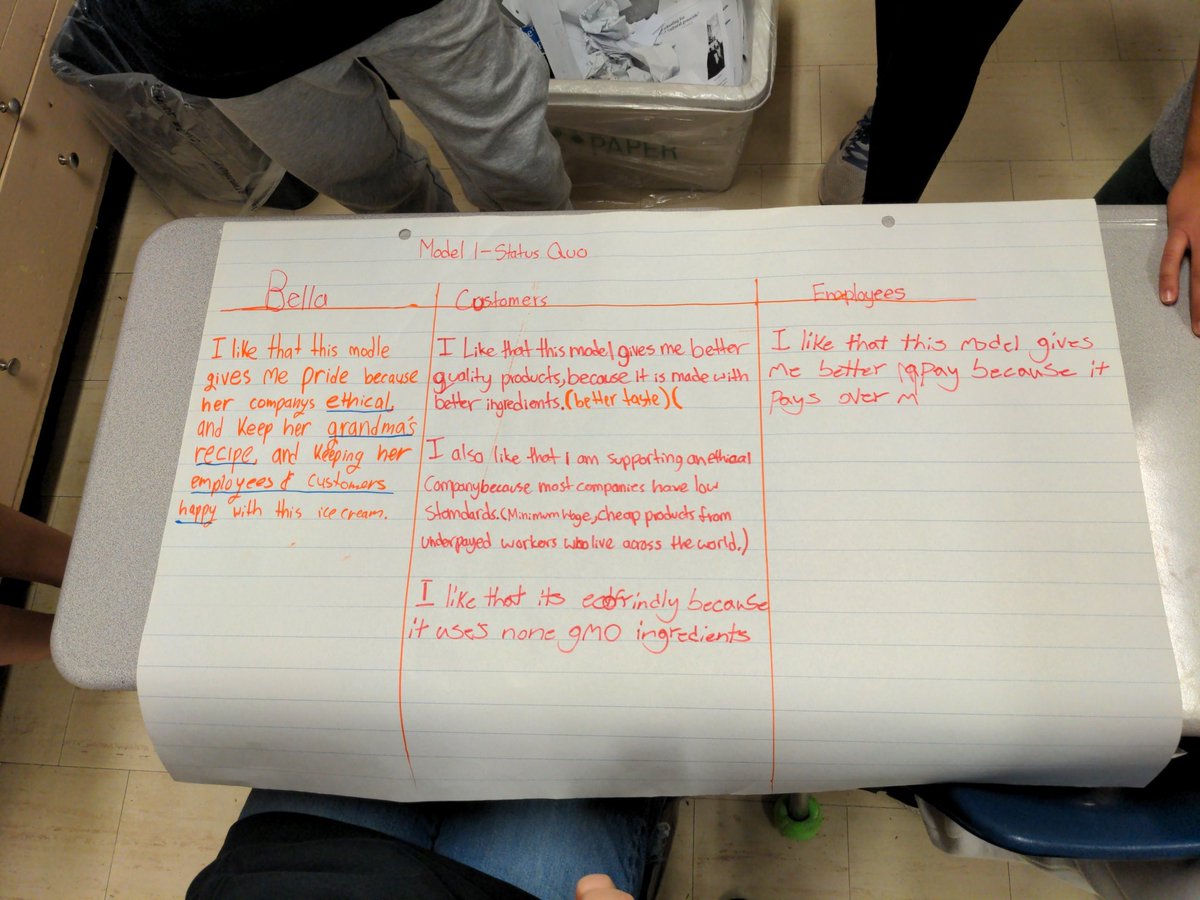 PAPER
Model 1-Status Quo
Bella
I like that this modle
gives me pride because
her companys ethical,
and keep her grandma's
recipe, and keeping her
employees & customers
happy with this ice cream.
Customers
I Like that this model gives me better
quality products, because it is made with
better ingredients. (better taste) (
I also like that I am supporting an ethical
Company because most companies have low
Standards. (Minimum Wage, cheap products from
underpayed workers who live across the world.)
I like that its ecofrindly because
it uses none gMO ingredients
Employees
I like that this model gives
me better pay because it
pays over m